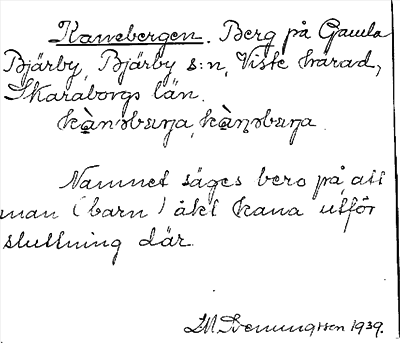 Kanebergen. Berg på Gamla
Bjärby, Bjärby s:n, Viste härad,
Skaraborgs län.
Namnet säges bero på, att
man (barn) åkt kana utför
sluttning där.
1939.